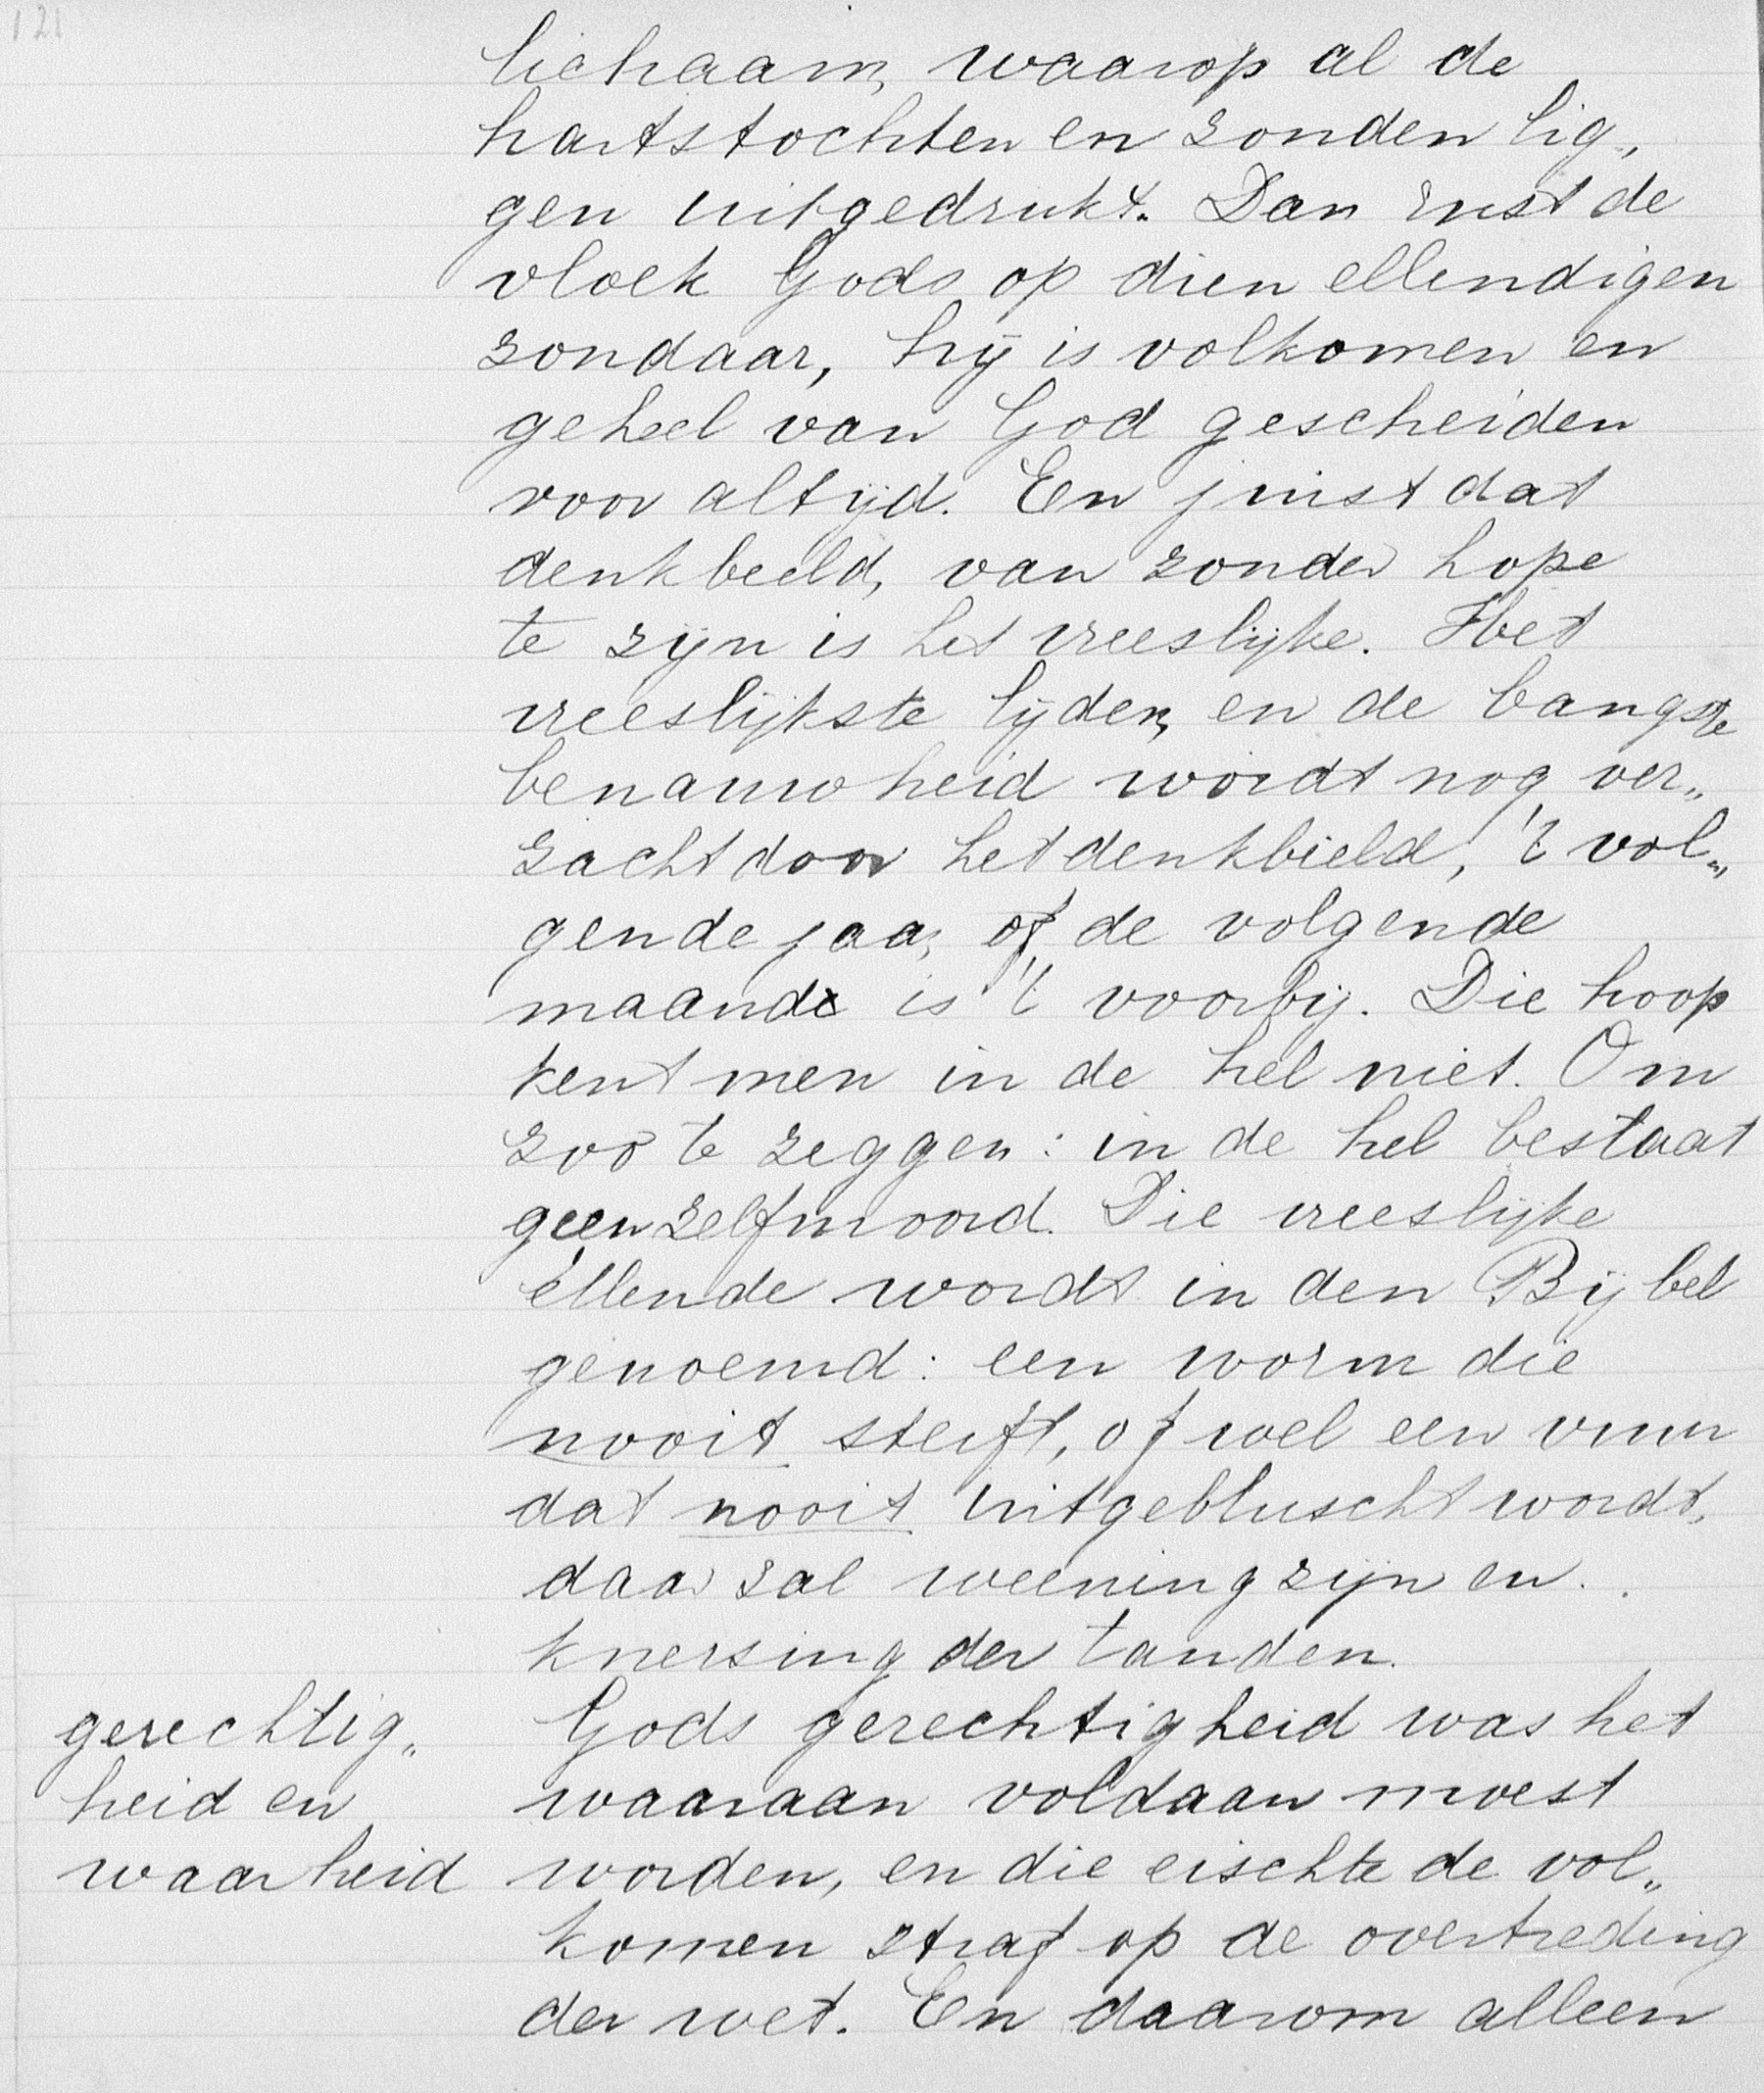 121
lichaam, waarop al de
hartstochten en zonden lig„
gen uitgedrukt. Dan rust de
vloek Gods op dien ellendigen
zondaar, hij is volkomen en
geheel van God gescheiden
voor altijd. En juist dat
denkbeeld, van zonder hope
te zijn is het vreeslijke. Het
vreeslijkste lijden, en de bangste
benauwheid wordt nog ver„
zacht door het denkbield, 't vol„
gende jaar, of de volgende
maand is 't voorbij. Die hoop
kent men in de hel niet. Om
zoo te zeggen: in de hel bestaat
geen zelfmoord. Die vreeslijke
ellende wordt in den Bijbel
genoemd: een worm die
nooit sterft, of wel een vuur
dat nooit uitgebluscht wordt,
daar zal weening zijn en
knersing der tanden.
gerechtig„
heid en
waarheid
Gods gerechtigheid was het
waaraan voldaan moest
worden, en die eischte de vol„
komen straf op de overtreding
der wet. En daarom alleen